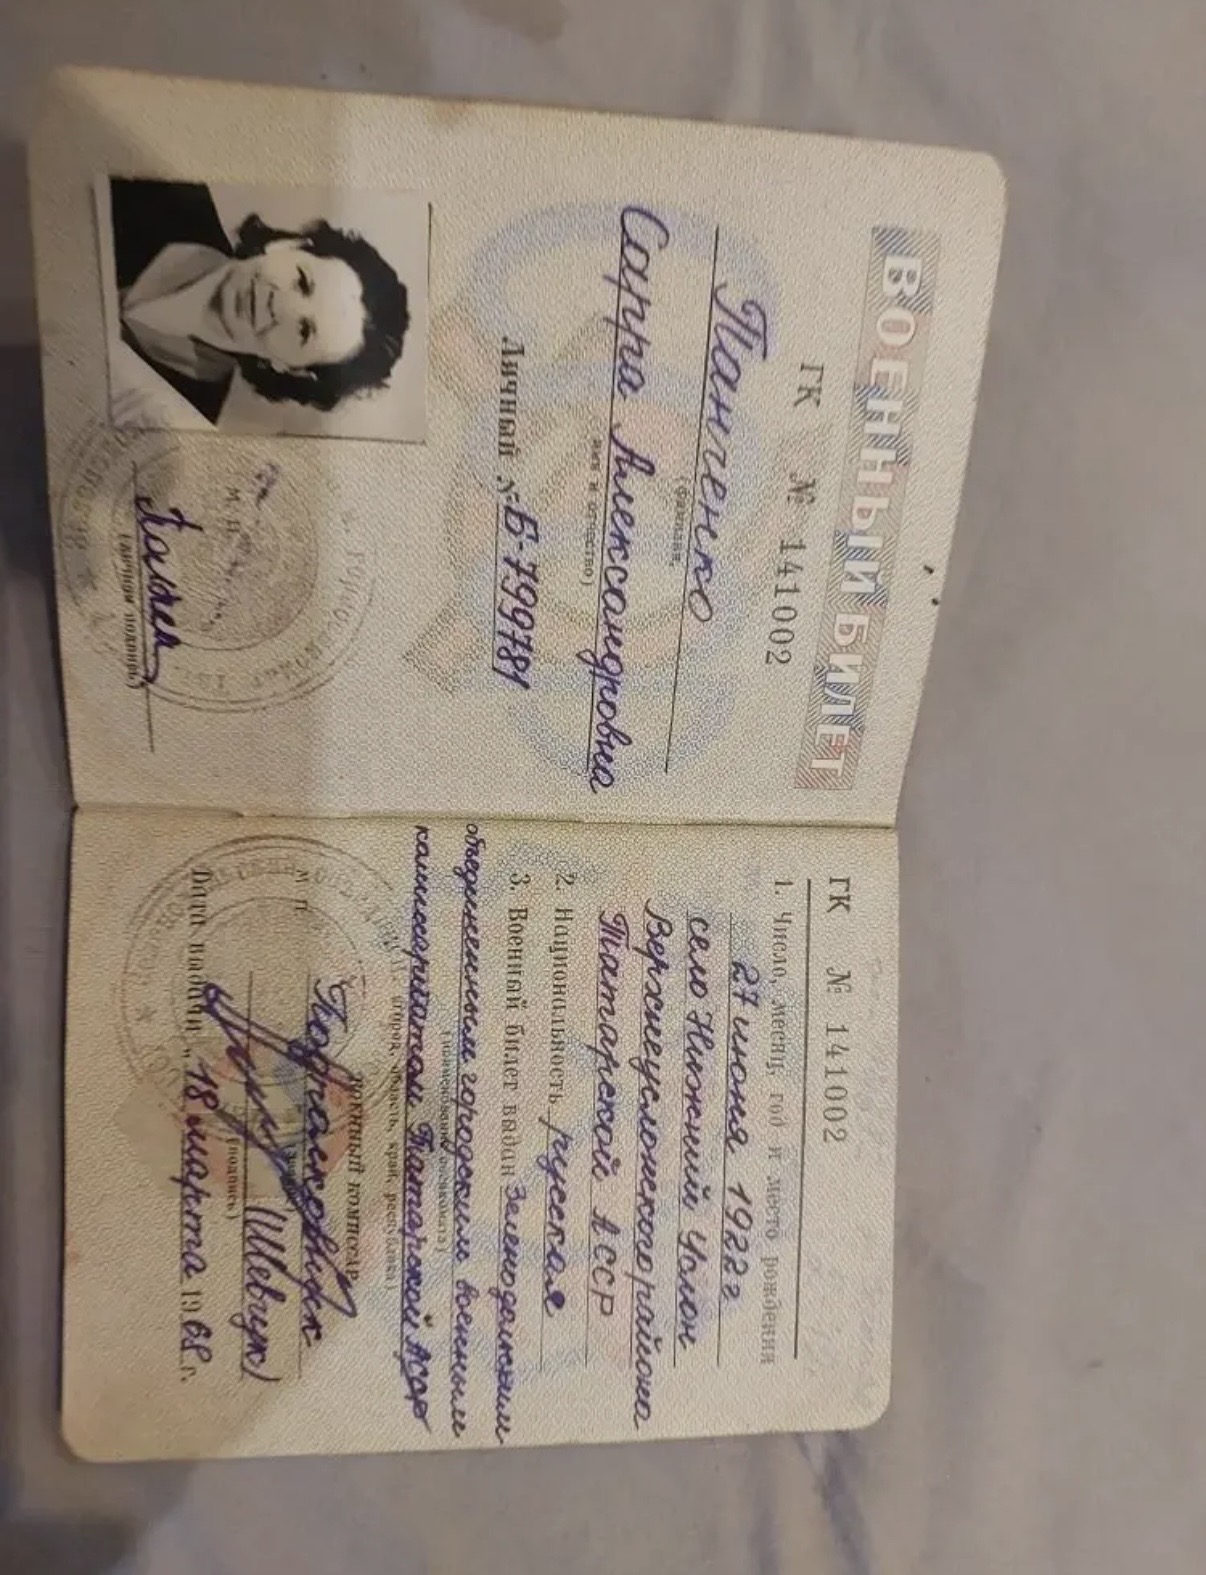 ВОЕННЫЙ БИЛЕТ
ГК № 141002
Панченко
(фамилия,
Сарра Александровна
имя и отчество)
Личный № Б-799781
М. П.
(личная подпись)
ГК № 141002
1. Число, месяц, год и место рождения
27 июня 1922 г
село Нижний Услон
Верхнеуслонского района
Татарской АССР
2. Национальность русская
3. Военный билет выдан Зеленодольским
объединенным городским военным
(наименование военкомата)
комиссариатом Татарской АССР
город, область, край, республика)
М. П.
ВОЕННЫЙ КОМИССАР
Подполковник
(звание)
(Шевчук)
(подпись)
Дата выдачи „18 марта 1968 г.